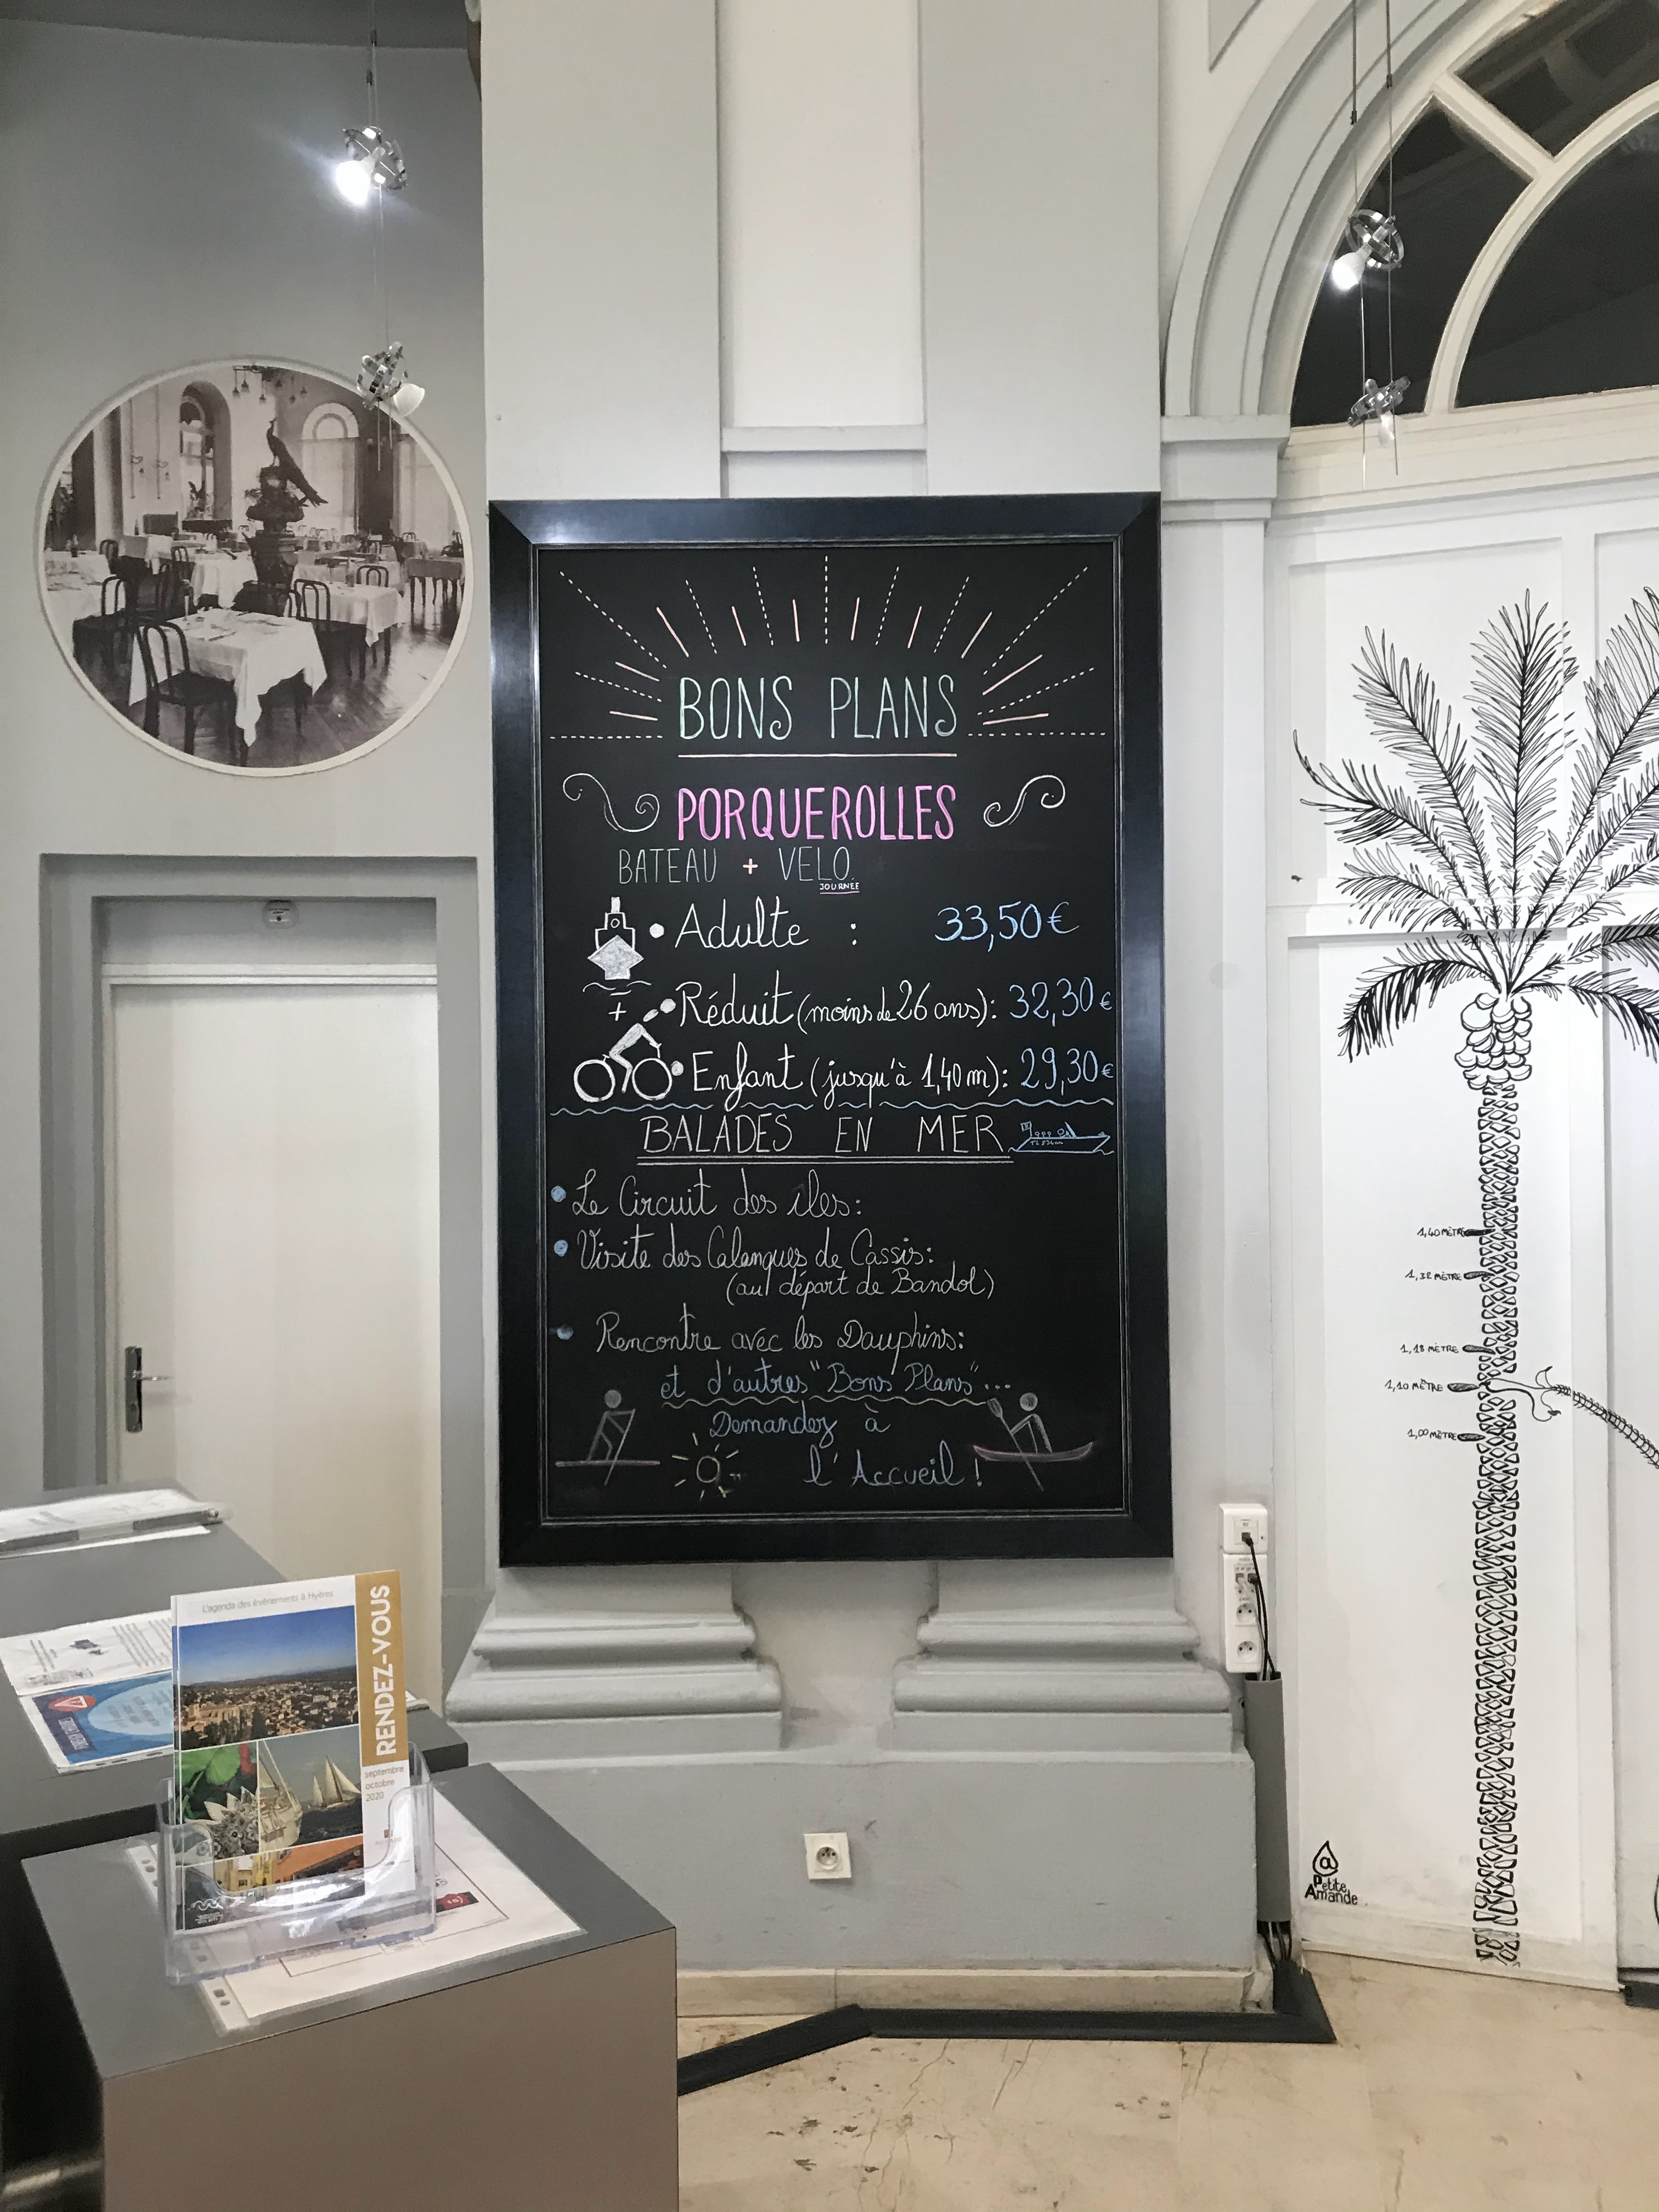 BONS PLANS
PORQUEROLLES
BATEAU + VELO
JOURNEE
• Adulte : 33,50€
+
• Réduit (moins de 26 ans): 32,30€
• Enfant (jusqu'à 1,40m): 29,30€
BALADES EN MER
• Le Circuit des iles:
• Visite des Calanques de Cassis:
(au départ de Bandol)
• Rencontre avec les Dauphins:
et d'autres "Bons Plans"...
Demandez à
l'Accueil !
1,40 MÈTRE
1,32 MÈTRE
1,18 MÈTRE
1,10 MÈTRE
1,00 MÈTRE
@
Petite
Amande
L'agenda des événements à Hyères
RENDEZ-VOUS
septembre
octobre
2020